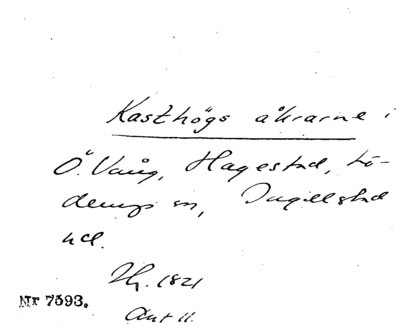 Kasthögs åkrarne i
Ö. Vång, Hagestad, Lö-
derups sn, Ingelstad
hd.
Zh. 1821
Nr 7593.
Akt 11.